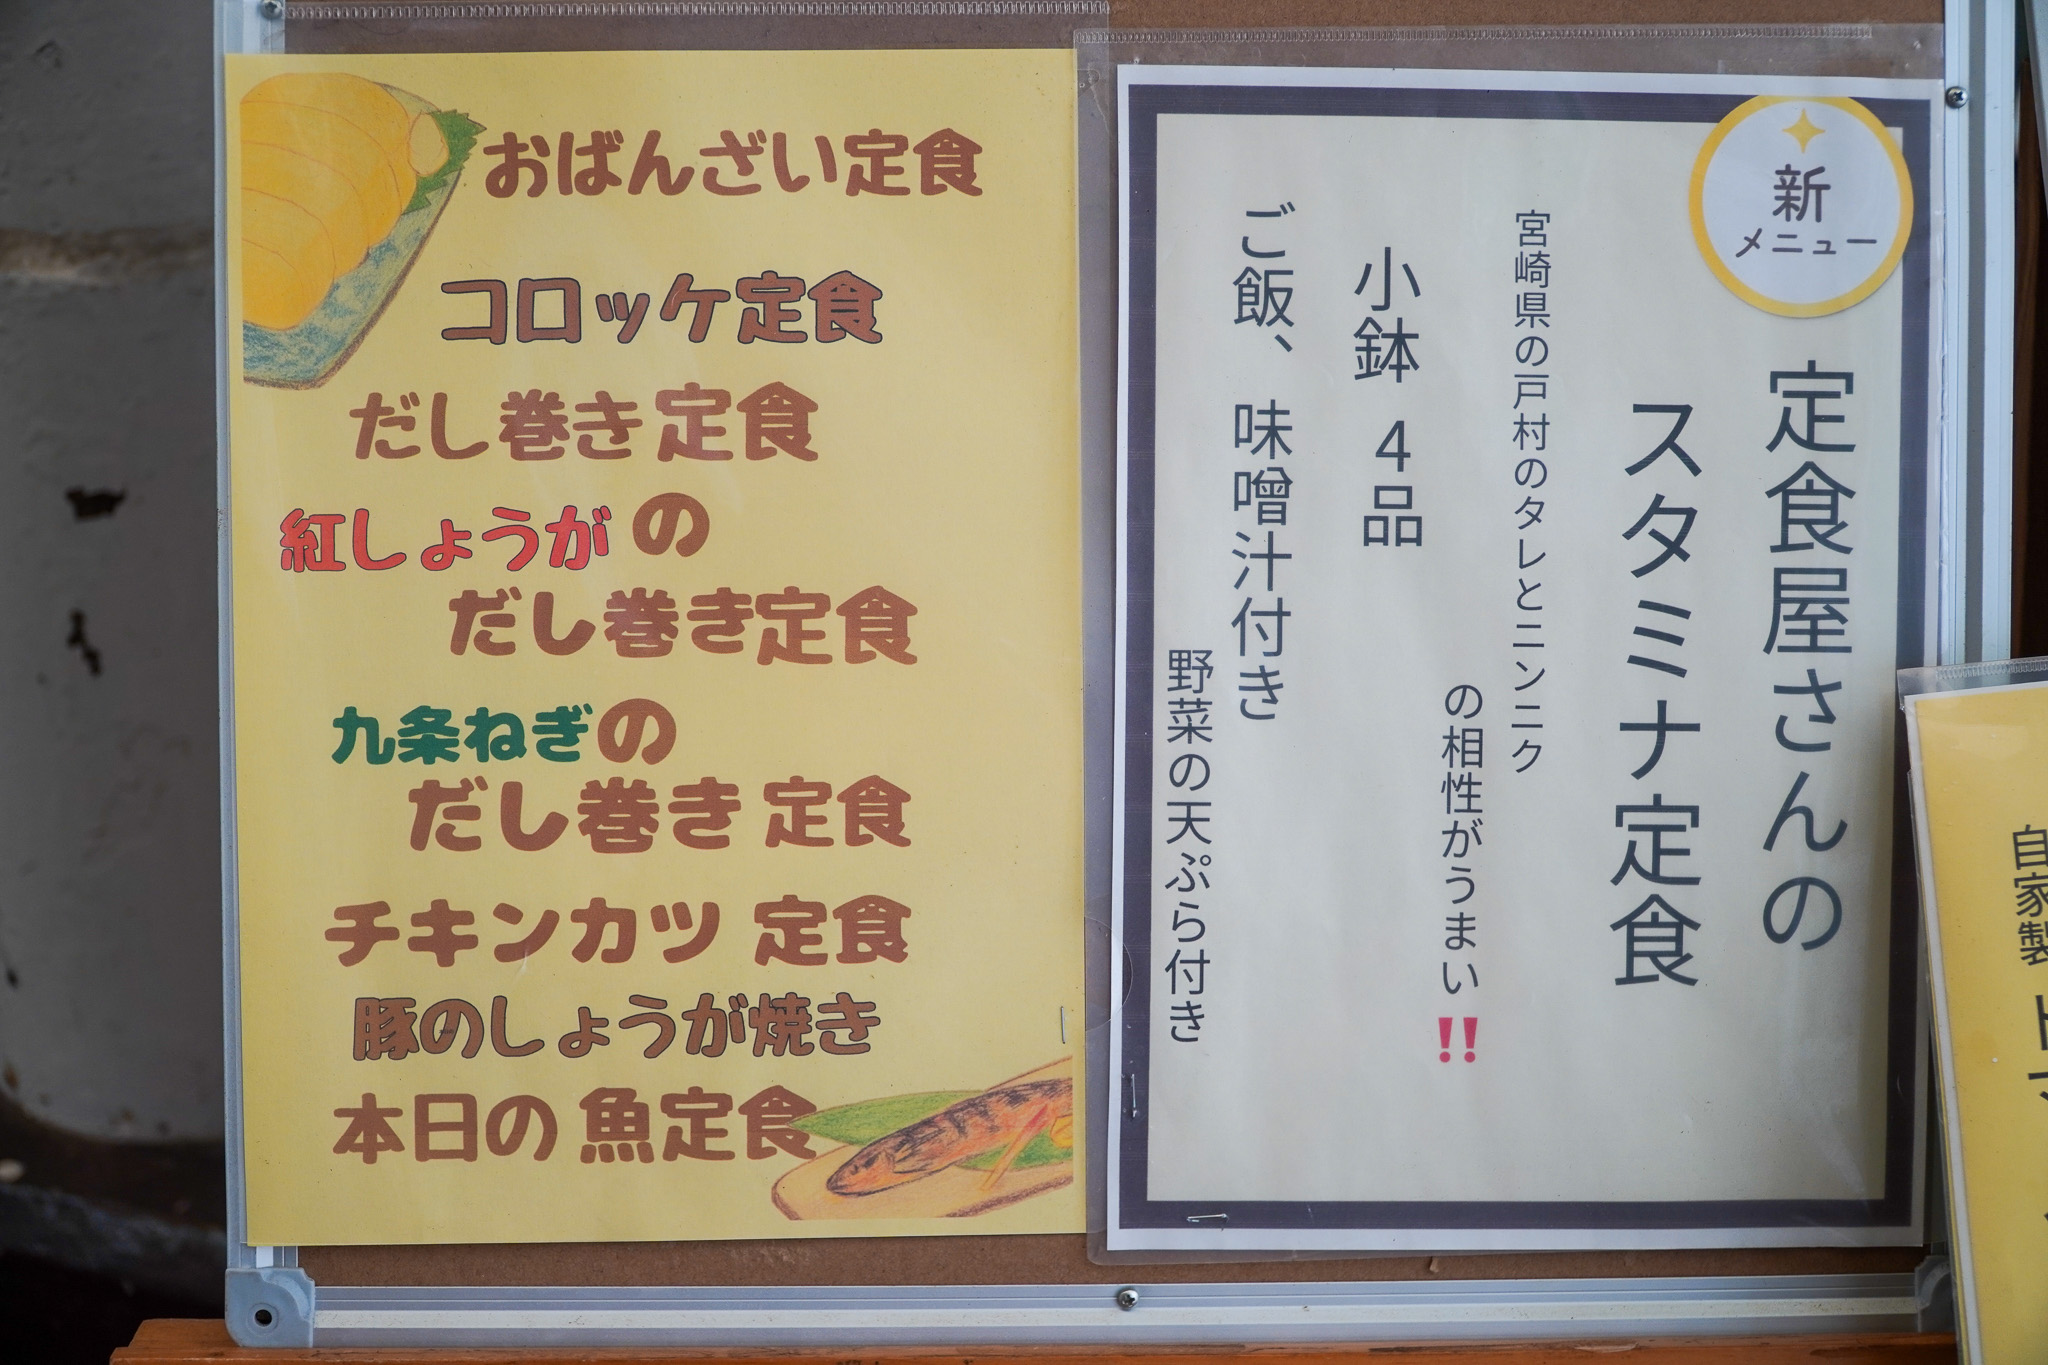 おばんざい定食
コロッケ定食
だし巻き定食
紅しょうがの
だし巻き定食
九条ねぎの
だし巻き定食
チキンカツ 定食
豚のしょうが焼き
本日の 魚定食
新
メニュー
定食屋さんの
スタミナ定食
宮崎県の戸村のタレとニンニク
の相性がうまい‼
小鉢 4品
ご飯、味噌汁付き
野菜の天ぷら付き
自家製